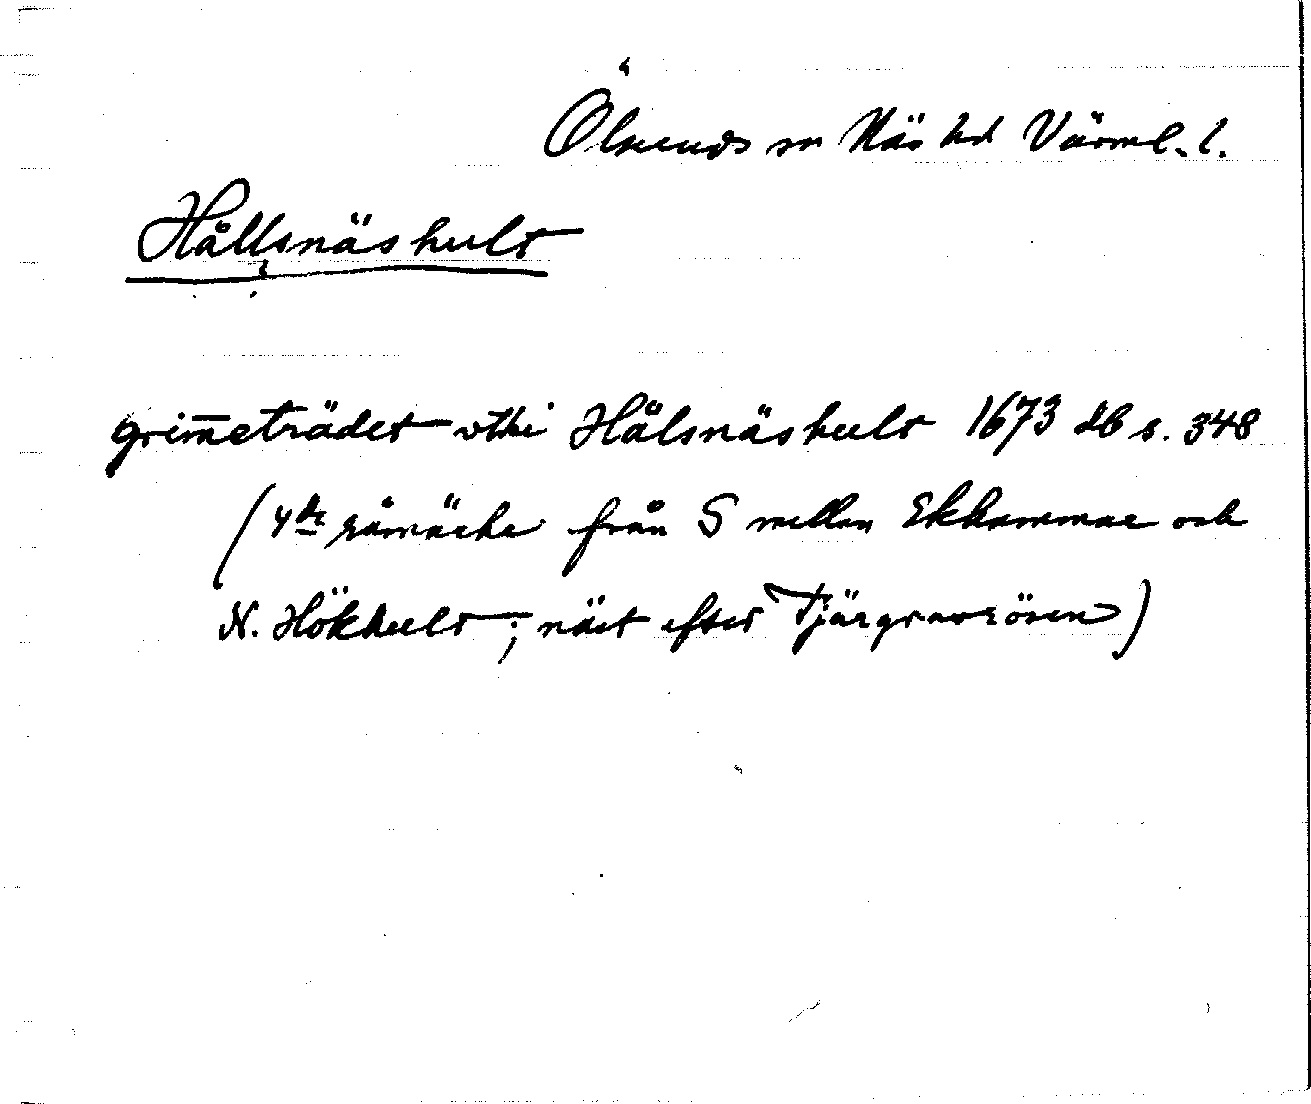 Ölseruds sn Näs hd Värml. l.
Hållsnäshult
grim̅eträdet vthi Hålsnäshult 1673 db s. 348
(4de råmärke från S mellan Ekhammar och
N. Hökhult; näst efter Tjärgravsrösen)